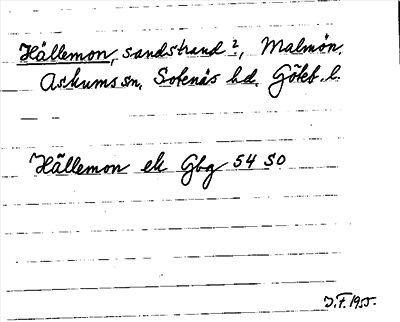 Hällemon, sandstrand?, Malmön,
Askums sn. Sotenäs hd. Göteb. l.
Hällemon ek Gbg 54 SO
J.F. 1955.